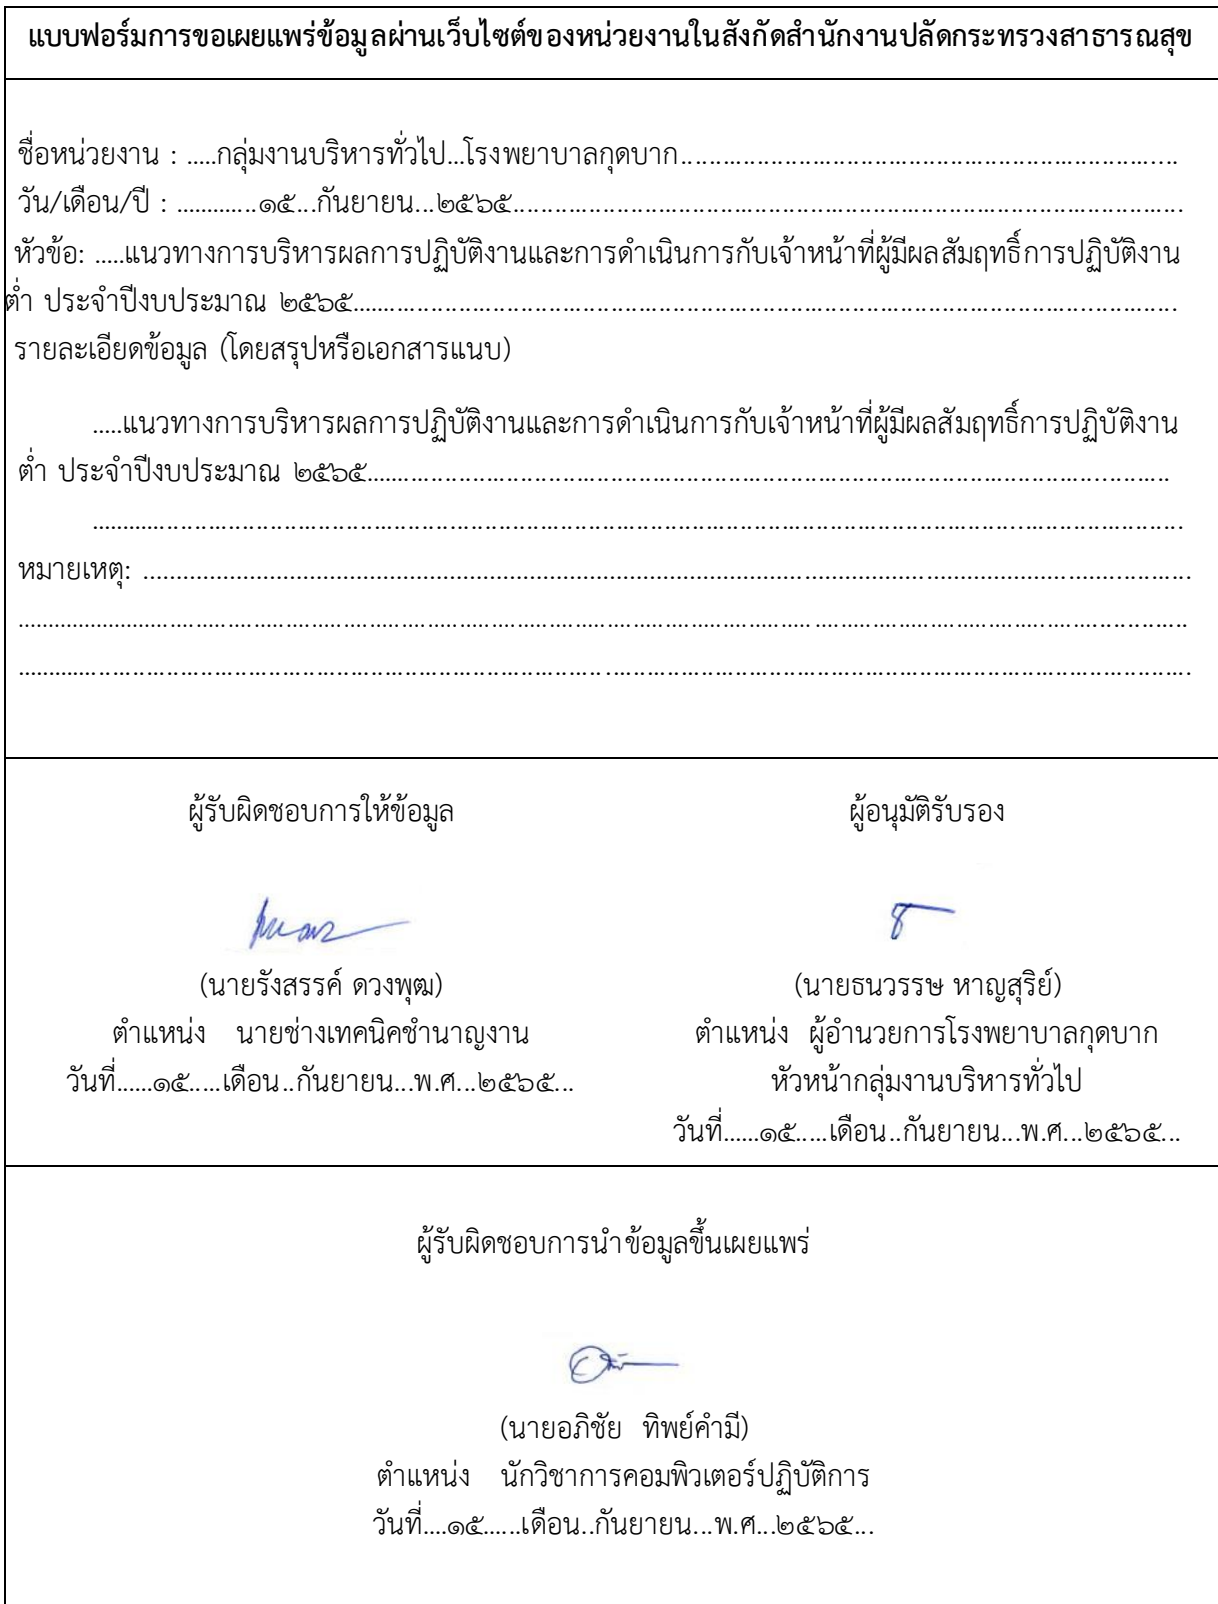 แบบฟอร์มการขอเผยแพร่ข้อมูลผ่านเว็บไซต์ของหน่วยงานในสังกัดสำนักงานปลัดกระทรวงสาธารณสุข
ชื่อหน่วยงาน : .....กลุ่มงานบริหารทั่วไป...โรงพยาบาลกุดบาก..........................................................................
วัน/เดือน/ปี : .............๑๕...กันยายน...๒๕๖๕....................................................................................................
หัวข้อ: .....แนวทางการบริหารผลการปฏิบัติงานและการดำเนินการกับเจ้าหน้าที่ผู้มีผลสัมฤทธิ์การปฏิบัติงาน
ต่ำ ประจำปีงบประมาณ ๒๕๖๕..........................................................................................................................
รายละเอียดข้อมูล (โดยสรุปหรือเอกสารแนบ)
.....แนวทางการบริหารผลการปฏิบัติงานและการดำเนินการกับเจ้าหน้าที่ผู้มีผลสัมฤทธิ์การปฏิบัติงาน
ต่ำ ประจำปีงบประมาณ ๒๕๖๕.......................................................................................................................
................................................................................................................................................................
หมายเหตุ: ..........................................................................................................................................................
..............................................................................................................................................................................
..............................................................................................................................................................................
ผู้รับผิดชอบการให้ข้อมูล ผู้อนุมัติรับรอง
(นายรังสรรค์ ดวงพุฒ) (นายธนวรรษ หาญสุริย์)
ตำแหน่ง นายช่างเทคนิคชำนาญงาน ตำแหน่ง ผู้อำนวยการโรงพยาบาลกุดบาก
วันที่......๑๕.....เดือน..กันยายน...พ.ศ...๒๕๖๕... หัวหน้ากลุ่มงานบริหารทั่วไป
วันที่......๑๕.....เดือน..กันยายน...พ.ศ...๒๕๖๕...
ผู้รับผิดชอบการนำข้อมูลขึ้นเผยแพร่
(นายอภิชัย ทิพย์คำมี)
ตำแหน่ง นักวิชาการคอมพิวเตอร์ปฏิบัติการ
วันที่....๑๕......เดือน..กันยายน...พ.ศ...๒๕๖๕...